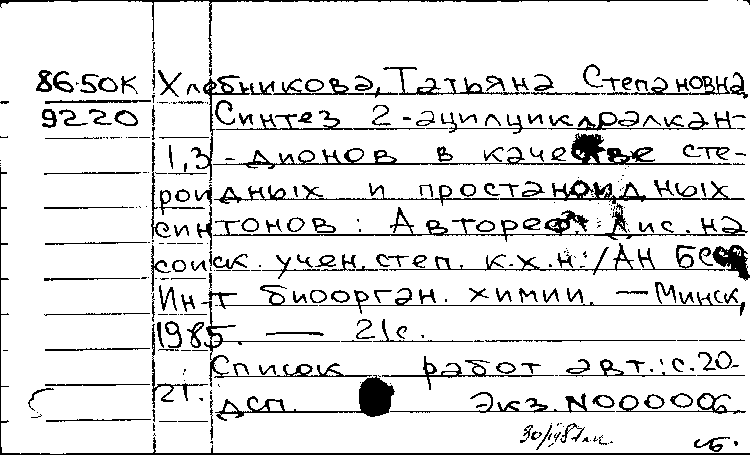 86-50К Хлебникова, Татьяна Степановна
9220 Синтез 2-ацилциклоалкан-
1,3-дионов в качестве сте-
роидных и простаноидных
синтонов : Автореф. Дис. на
соиск. учен. степ. к.х.н. : /АН БССР
Ин-т биоорган. химии. — Минск,
1985. — 21с.
Список работ авт.: с.20-
21.
ДСП. Экз. N000006